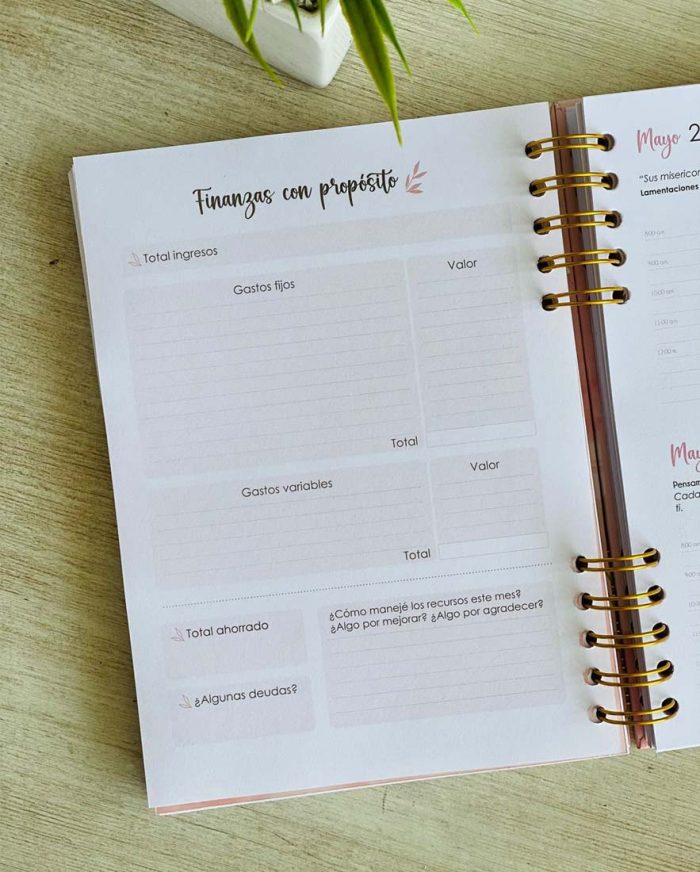 Finanzas con propósito
Total ingresos
Gastos fijos
Valor
Total
Gastos variables
Valor
Total
Total ahorrado
¿Algunas deudas?
¿Cómo manejé los recursos este mes?
¿Algo por mejorar? ¿Algo por agradecer?
Mayo 2
"Sus misericor
Lamentaciones
8:00 am.
9:00 am.
10:00 am.
11:00 am.
12:00 m.
May
Pensam
Cada
ti.
8:00 am
9:00 am
10:0